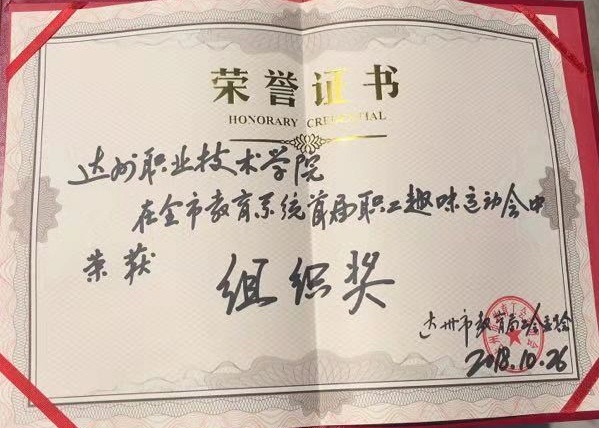 荣誉证书
HONORARY CREDENTIAL
达州职业技术学院
在全市教育系统首届职工趣味运动会中
荣获
组织奖
达州市教育局工会委员会
2018.10.26